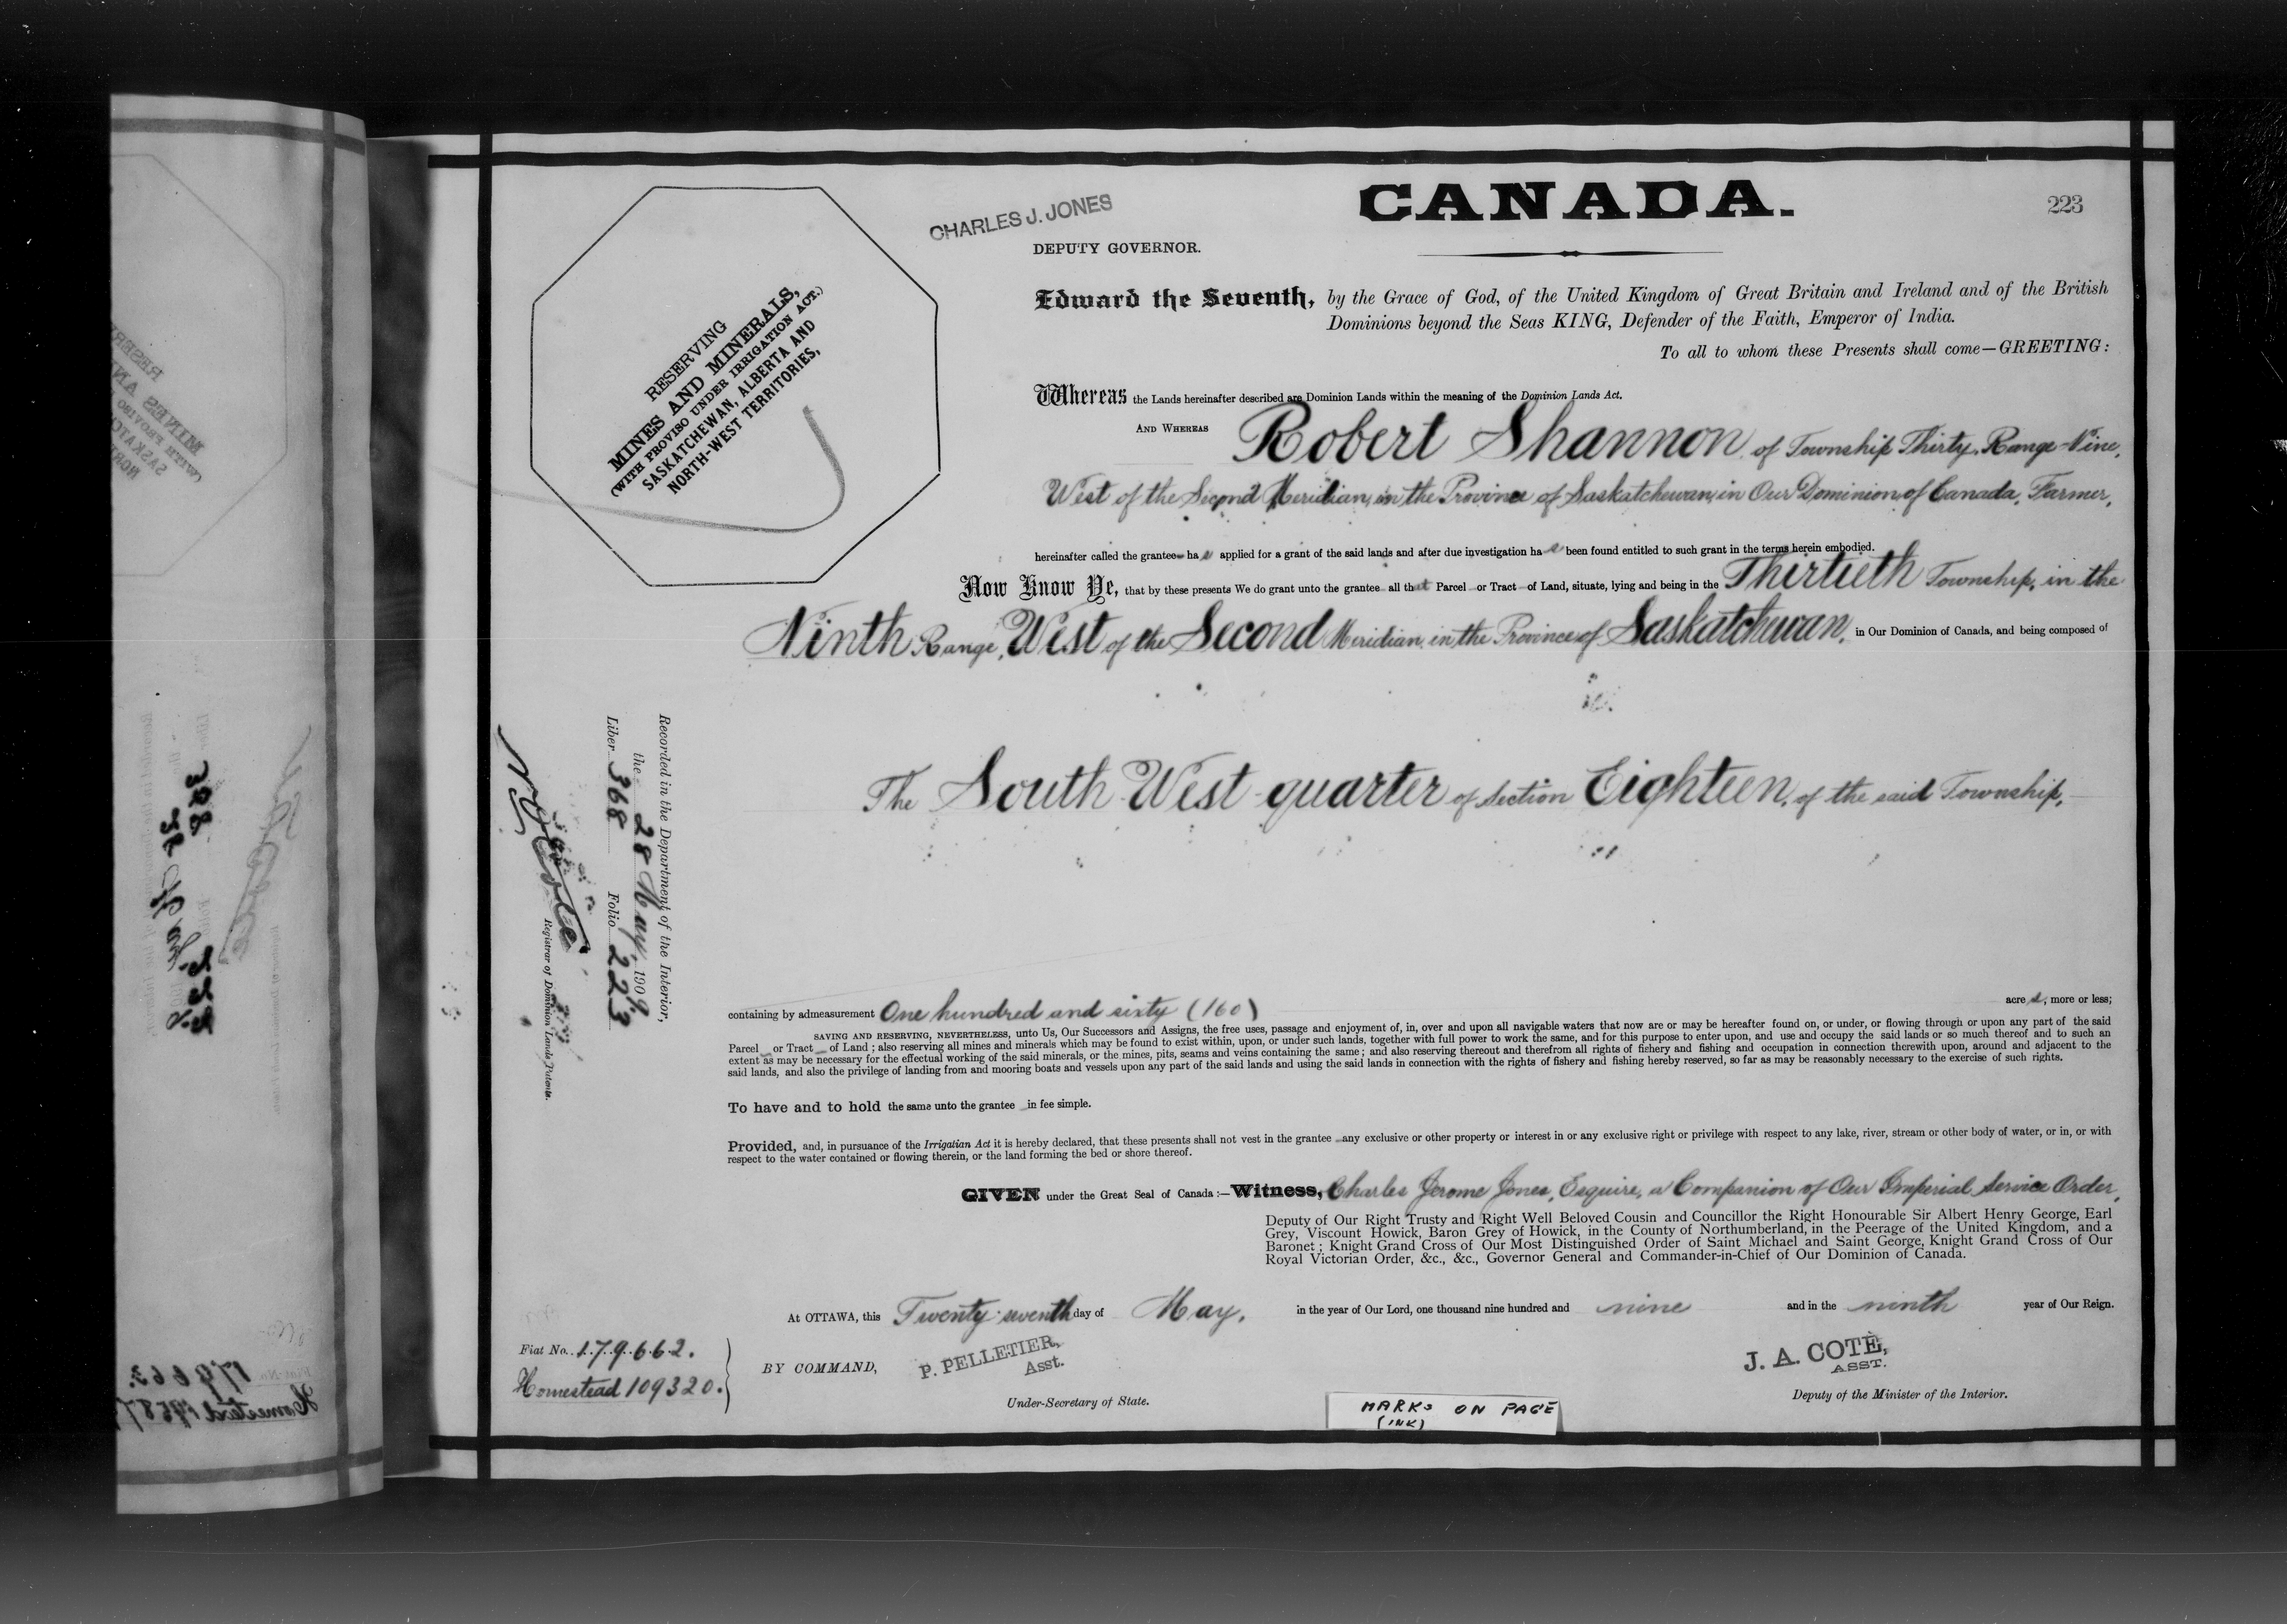 CANADA.
223
CHARLES J. JONES
DEPUTY GOVERNOR.
RESERVING
MINES AND MINERALS,
(WITH PROVISO UNDER IRRIGATION ACT.)
SASKATCHEWAN, ALBERTA AND
NORTH-WEST TERRITORIES,
Edward the Seventh, by the Grace of God, of the United Kingdom of Great Britain and Ireland and of the British
Dominions beyond the Seas KING, Defender of the Faith, Emperor of India.
To all to whom these Presents shall come—GREETING:
Whereas the Lands hereinafter described are Dominion Lands within the meaning of the Dominion Lands Act.
AND WHEREAS Robert Shannon, of Township Thirty, Range Nine,
West of the Second Meridian, in the Province of Saskatchewan, in Our Dominion of Canada, Farmer,
hereinafter called the grantee has applied for a grant of the said lands and after due investigation has been found entitled to such grant in the terms herein embodied.
Now Know Ye, that by these presents We do grant unto the grantee all that Parcel or Tract of Land, situate, lying and being in the Thirtieth Township, in the
Ninth Range, West of the Second Meridian, in the Province of Saskatchewan, in Our Dominion of Canada, and being composed of
The South West quarter of Section Eighteen, of the said Township,
containing by admeasurement One hundred and sixty (160) acres, more or less;
SAVING AND RESERVING, NEVERTHELESS, unto Us, Our Successors and Assigns, the free uses, passage and enjoyment of, in, over and upon all navigable waters that now are or may be hereafter found on, or under, or flowing through or upon any part of the said
Parcel or Tract of Land; also reserving all mines and minerals which may be found to exist within, upon, or under such lands, together with full power to work the same, and for this purpose to enter upon, and use and occupy the said lands or so much thereof and to such an
extent as may be necessary for the effectual working of the said minerals, or the mines, pits, seams and veins containing the same; and also reserving thereout and therefrom all rights of fishery and fishing and occupation in connection therewith upon, around and adjacent to the
said lands, and also the privilege of landing from and mooring boats and vessels upon any part of the said lands and using the said lands in connection with the rights of fishery and fishing hereby reserved, so far as may be reasonably necessary to the exercise of such rights.
To have and to hold the same unto the grantee in fee simple.
Provided, and, in pursuance of the Irrigation Act it is hereby declared, that these presents shall not vest in the grantee any exclusive or other property or interest in or any exclusive right or privilege with respect to any lake, river, stream or other body of water, or in, or with
respect to the water contained or flowing therein, or the land forming the bed or shore thereof.
GIVEN under the Great Seal of Canada:—Witness, Charles Jerome Jones, Esquire, a Companion of Our Imperial Service Order,
Deputy of Our Right Trusty and Right Well Beloved Cousin and Councillor the Right Honourable Sir Albert Henry George, Earl
Grey, Viscount Howick, Baron Grey of Howick, in the County of Northumberland, in the Peerage of the United Kingdom, and a
Baronet; Knight Grand Cross of Our Most Distinguished Order of Saint Michael and Saint George, Knight Grand Cross of Our
Royal Victorian Order, &c., &c., Governor General and Commander-in-Chief of Our Dominion of Canada.
At OTTAWA, this Twenty-seventh day of May, in the year of Our Lord, one thousand nine hundred and nine and in the ninth year of Our Reign.
BY COMMAND,
P. PELLETIER,
Asst.
Under-Secretary of State.
J. A. COTÉ,
ASST.
Deputy of the Minister of the Interior.
Fiat No. 179662.
Homestead 109320.
MARKS ON PAGE
(INK)
Recorded in the Department of the Interior,
the 28 May, 1909
Liber 368 Folio 223
Registrar of Dominion Lands Patents.